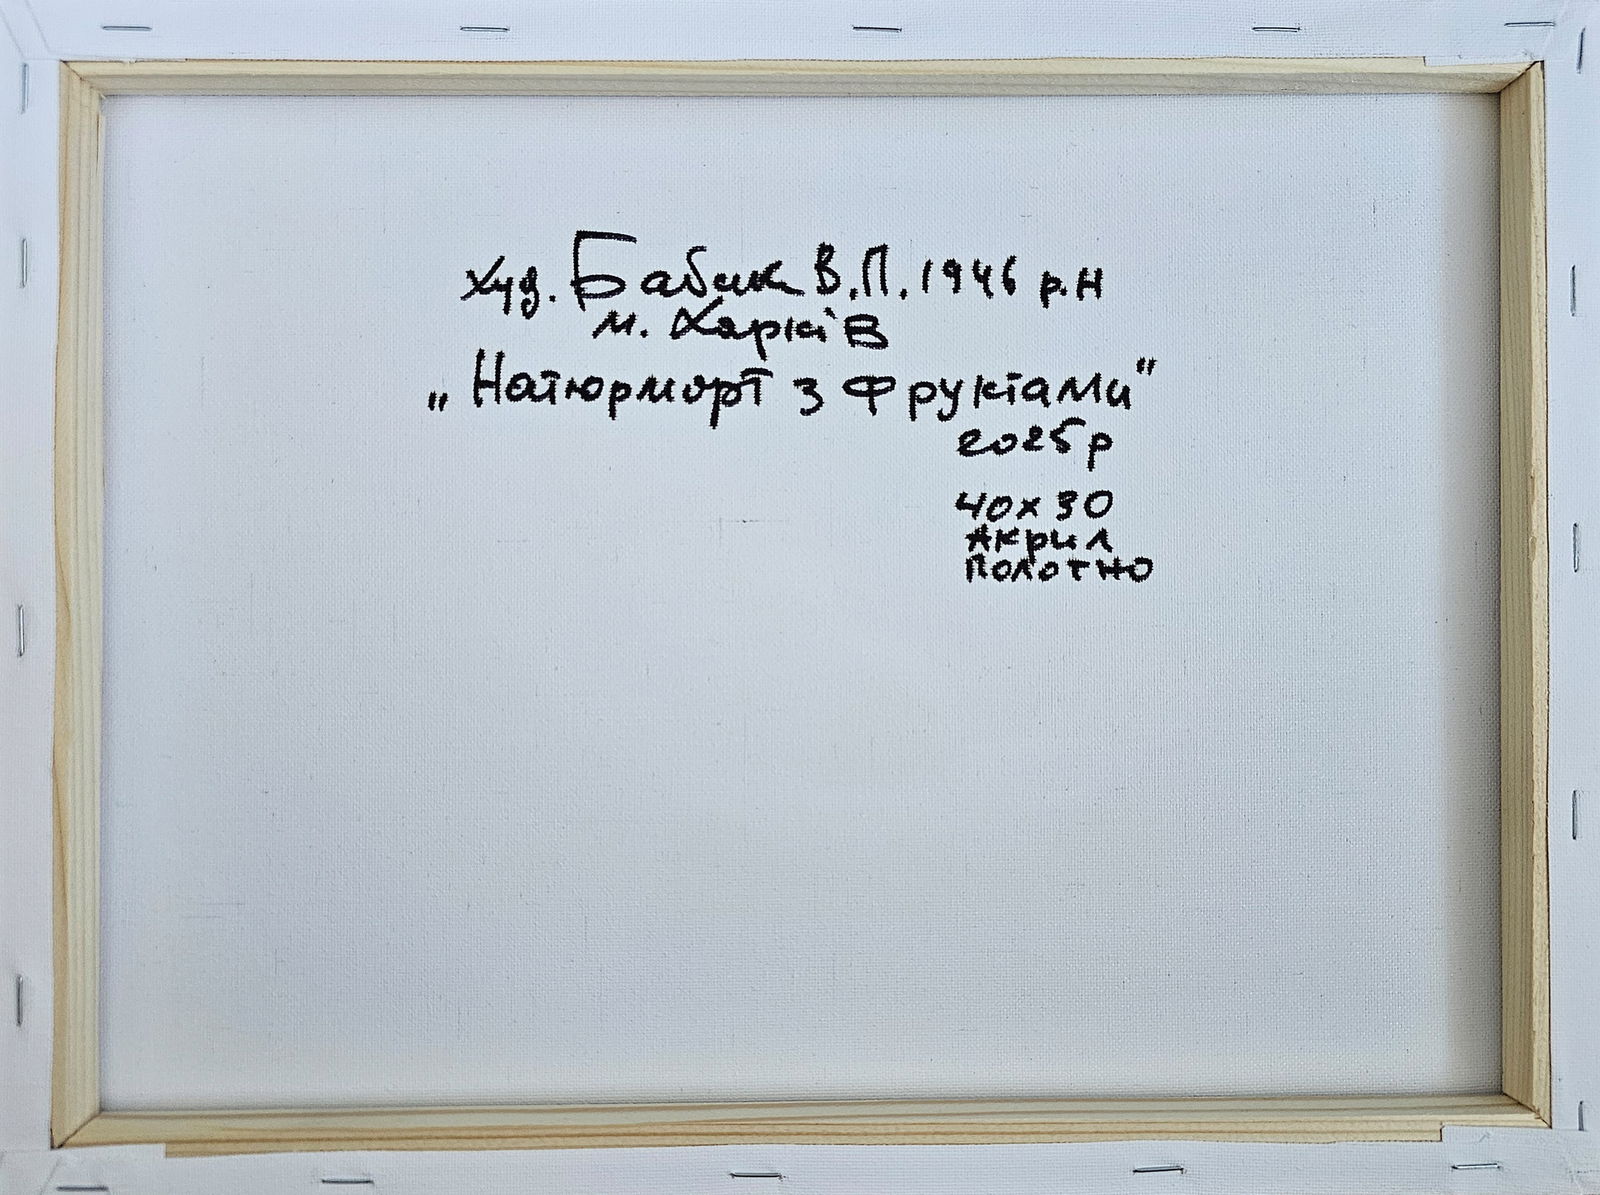 худ. Бабак В.П. 1946 р.н
м. Харків
„Натюрморт з фруктами"
2025р
40х30
Акрил
полотно